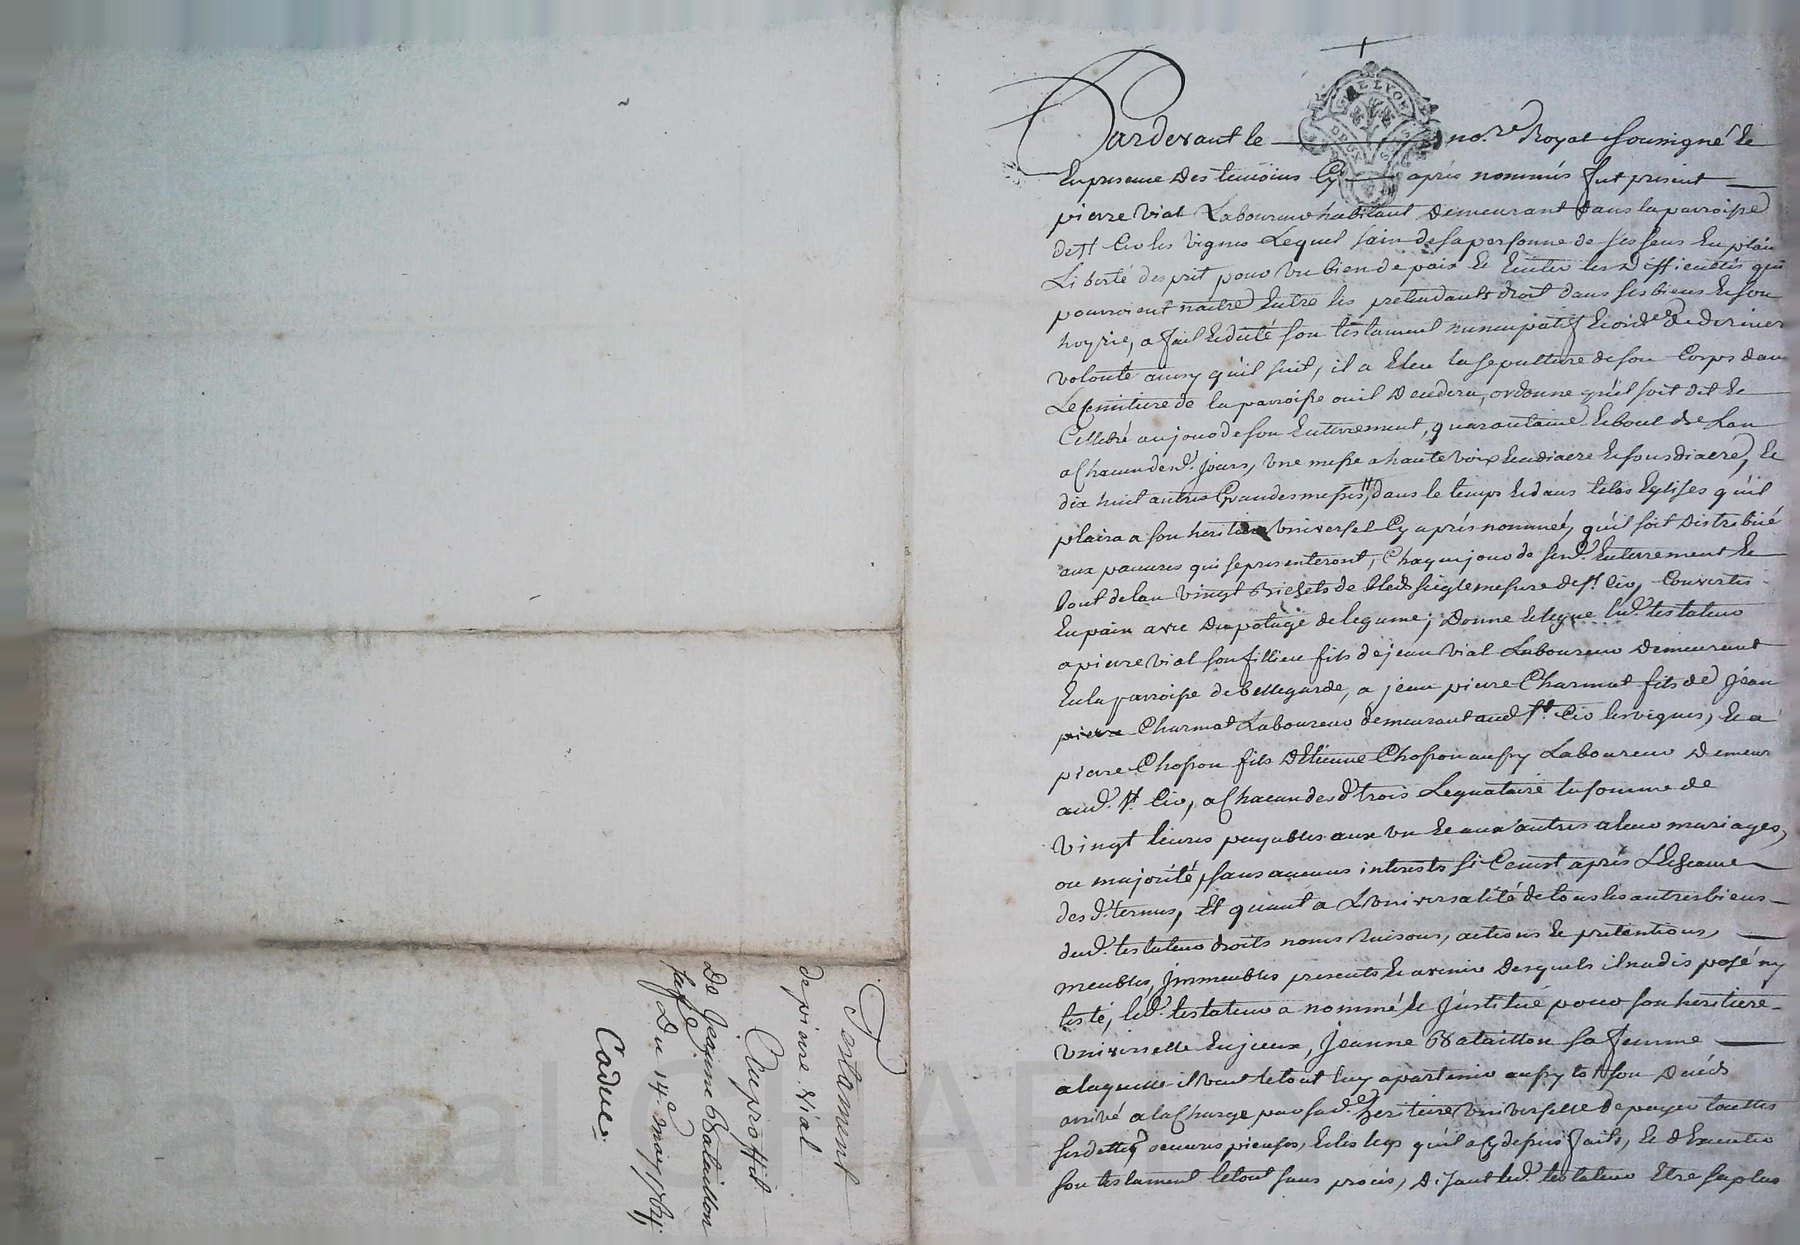 Testament
de pierre Vial
Au proffit
De Jeanne Bataillon
sa fe
Du 14e may 1784
Caduc.
Pardevant le no.re Royal soussigné Et
En presence des temoins Cy après nommés fut present
pierre Vial Laboureur habitant Demeurant Dans la parroisse
de St Cir les Vignes Lequel sain de sa personne de ses sens En plain
Liberté desprit pour Un bien de paix Et Eviter les Difficultés qui
pourroient naitre Entre les pretendants droit dans ses biens En son
hoyrie, a fait Et dicté son testament nuncupatif Et ord.ce de derniere
volonté ainsy quil suit, il a Eleu la sepulture de son Corps dans
Le semitiere de la parroisse ou il Decedera, ordonne quil soit dit Et
Cellebré au jour de son Enterrement, quarantaine Et bout de Lan
a Chacun desd. jours, Une messe a haute voix Et diacre Et sousdiacre, Et
dix huit autres Grandes messes, dans le temps Et dans telles Eglises quil
plaira a son heritiere Universel Cy après nommée, quil soit Distribué
aux pauvres qui se presenteront, Chaque jour de sond. Enterrement Et
bout de lan Vingt Bichets de bled seigle mesure de St Cir, Convertis
En pain avec Du potage de legume; Donne Et legue led. testateur
a pierre Vial son fillieu fils de jean Vial Laboureur Demeurant
En la parroisse de bellegarde, a jean pierre Charmat fils de Jean
pierre Charmat Laboureur demeurant aud St. Cir les vignes, Et a
pierre Chosson fils D'Etienne Chosson aussy Laboureur Demeur
aud. St Cir, a Chacun desd trois Legataire la somme de
Vingt livres payables aux Un Et aux autres a leur mariages,
ou majorité, sans aucuns interests si Ce n'est après L'Echeance
desd. termes, Et quant a L'Universalité de tous les autres biens
dud. testateur droits noms Raisons, actions Et pretentions,
meubles, Jmmeubles presents Et avenir Desquels il na disposé ny
testé, led. testateur a nommé Et Jnstitué pour son heritiere
Universelle Jeanne Bataillon sa femme
a laquelle il Veut le tout luy apartenir aussy tot son Decés
arrivé a la Charge par sad.e heritiere Universelle De payer touttes
ses dettes oeuvres pieuses, Et les legs quil a Cy depuis faits, Et d'Executer
son testament le tout sans procès, Disant led. testateur Etre sa plus